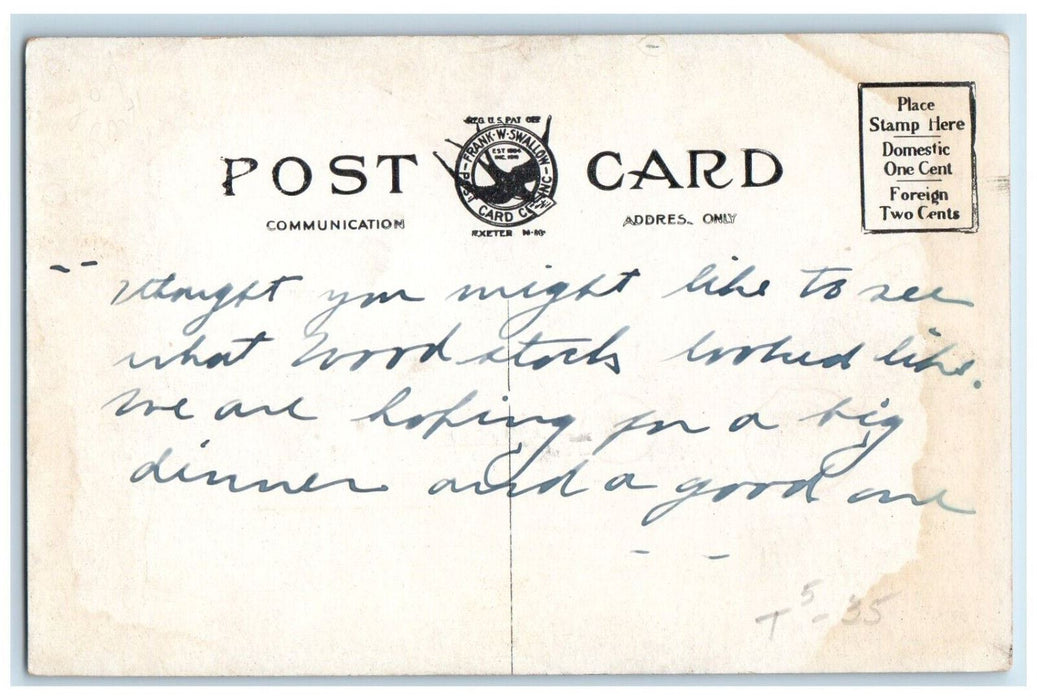 REG. U.S. PAT OFF
POST CARD
FRANK·W·SWALLOW
EST 1884
INC. 1910
POST CARD CO. INC
EXETER N-H
COMMUNICATION
ADDRES. ONLY
Place
Stamp Here
Domestic
One Cent
Foreign
Two Cents
-- thought you might like to see
what Woodstock looked like.
We are hoping for a big
dinner and a good one
- -
5-35